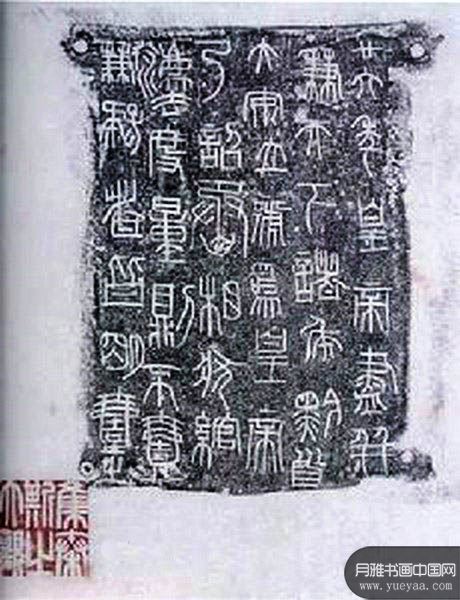 廿六年皇帝盡并
兼天下諸侯黔首
大安立號為皇帝
乃詔丞相狀綰
灋度量則不壹
歉疑者皆明壹之
月雅书画中国网
www.yueyaa.com